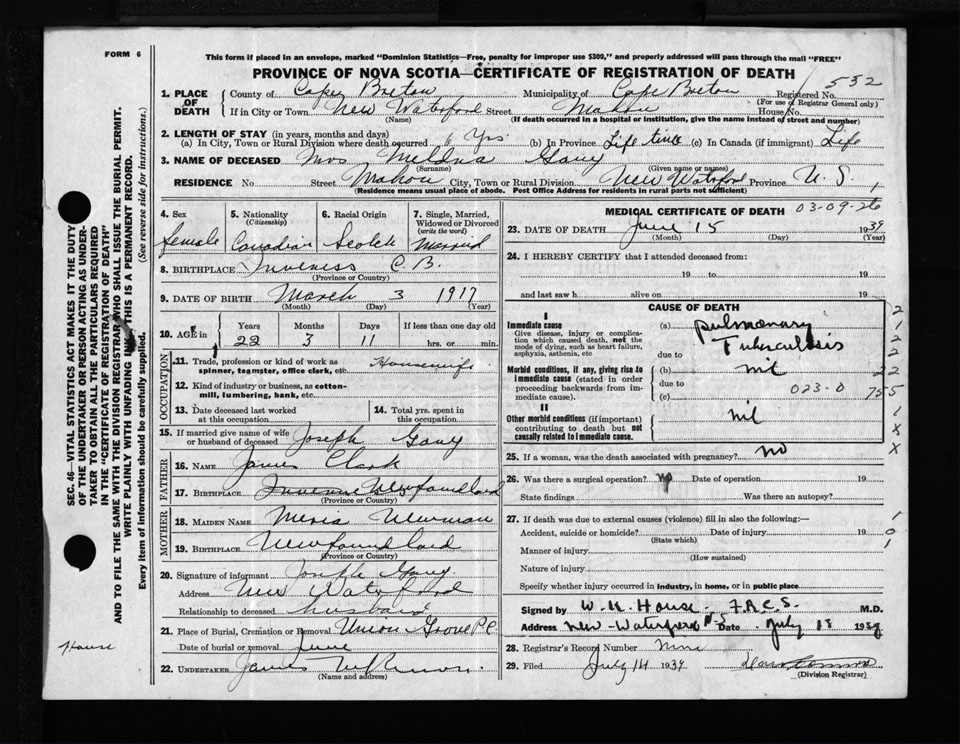 FORM 6
This form if placed in an envelope, marked "Dominion Statistics—Free, penalty for improper use $300," and properly addressed will pass through the mail "FREE"
PROVINCE OF NOVA SCOTIA—CERTIFICATE OF REGISTRATION OF DEATH
532
1. PLACE OF DEATH
County of Cape Breton Municipality of Cape Breton Registered No.
(For use of Registrar General only)
If in City or Town New Waterford Street Mahon House No.
(Name) (If death occurred in a hospital or institution, give the name instead of street and number)
2. LENGTH OF STAY (in years, months and days)
(a) In City, Town or Rural Division where death occurred 6 Yrs. (b) In Province Life time (c) In Canada (if immigrant) Life
3. NAME OF DECEASED Mrs Meldna
(Surname) (Given name or names)
RESIDENCE No Street Mahon City, Town or Rural Division New Waterford Province N. S.
(Residence means usual place of abode. Post Office Address for residents in rural parts not sufficient)
4. Sex
female
5. Nationality
(Citizenship)
Canadian
6. Racial Origin
Scotch
7. Single, Married, Widowed or Divorced
(write the word)
Married
8. BIRTHPLACE Inverness C B.
(Province or Country)
9. DATE OF BIRTH March 3 1917
(Month) (Day) (Year)
10. AGE in Years Months Days If less than one day old
22 3 11 hrs. or min.
OCCUPATION
11. Trade, profession or kind of work as spinner, teamster, office clerk, etc. Housewife
12. Kind of industry or business, as cotton-mill, lumbering, bank, etc.
13. Date deceased last worked at this occupation
14. Total yrs. spent in this occupation
15. If married give name of wife or husband of deceased Joseph
FATHER
16. NAME James Clark
17. BIRTHPLACE Newfoundland
(Province or Country)
MOTHER
18. MAIDEN NAME Newman
19. BIRTHPLACE Newfoundland
(Province or Country)
20. Signature of informant Joseph
Address New Waterford
Relationship to deceased husband
21. Place of Burial, Cremation or Removal Union Grove
Date of burial or removal June
22. UNDERTAKER James
(Name and address)
MEDICAL CERTIFICATE OF DEATH 03-09-26
23. DATE OF DEATH June 15 1939
(Month) (Day) (Year)
24. I HEREBY CERTIFY that I attended deceased from:
19 to 19
and last saw h alive on 19
CAUSE OF DEATH
I
Immediate cause
Give disease, injury or complication which caused death, not the mode of dying, such as heart failure, asphyxia, asthenia, etc
(a) Pulmonary Tuberculosis
due to
Morbid conditions, if any, giving rise to immediate cause (stated in order proceeding backwards from immediate cause).
(b) nil
due to
(c) 023-0
II
Other morbid conditions (if important) contributing to death but not causally related to immediate cause.
nil
25. If a woman, was the death associated with pregnancy? no
26. Was there a surgical operation? no Date of operation 19
State findings Was there an autopsy?
27. If death was due to external causes (violence) fill in also the following:—
Accident, suicide or homicide? Date of injury 19
(State which)
Manner of injury
(How sustained)
Nature of injury
Specify whether injury occurred in industry, in home, or in public place
Signed by W. K. House, F.A.C.S. M.D.
Address New-Waterford N-S Date July 13 1939
28. Registrar's Record Number
29. Filed July 14 1939
(Division Registrar)
SEC. 46—VITAL STATISTICS ACT MAKES IT THE DUTY
OF THE UNDERTAKER OR PERSON ACTING AS UNDER-
TAKER TO OBTAIN ALL THE PARTICULARS REQUIRED
IN THE "CERTIFICATE OF REGISTRATION OF DEATH"
AND TO FILE THE SAME WITH THE DIVISION REGISTRAR WHO SHALL ISSUE THE BURIAL PERMIT.
WRITE PLAINLY WITH UNFADING INK—THIS IS A PERMANENT RECORD.
Every item of information should be carefully supplied. (See reverse side for instructions.)
House